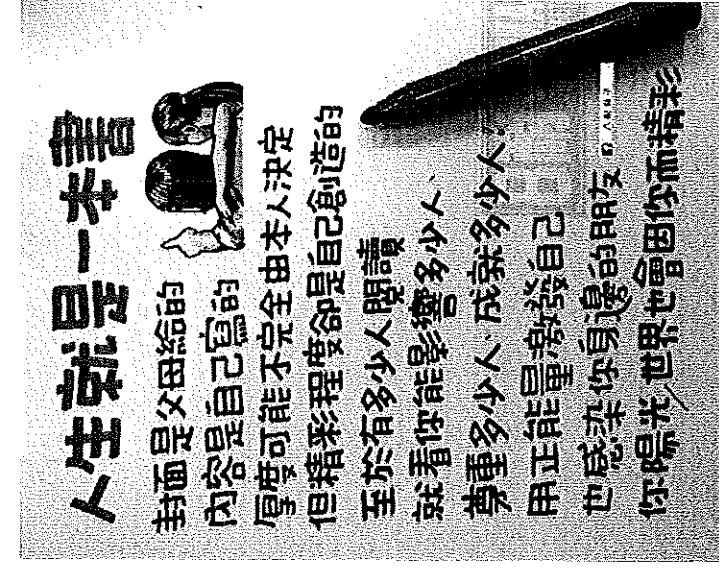 人生就是一本書
封面是父母給的
內容是自己寫的
厚度可能不完全由本人決定
但精彩程度卻是自己創造的
至於有多少人閱讀
就看你能影響多少人、
尊重多少人、成就多少人,
用正能量激發自己
也感染你身邊的朋友
你陽光，世界也會因你而精彩